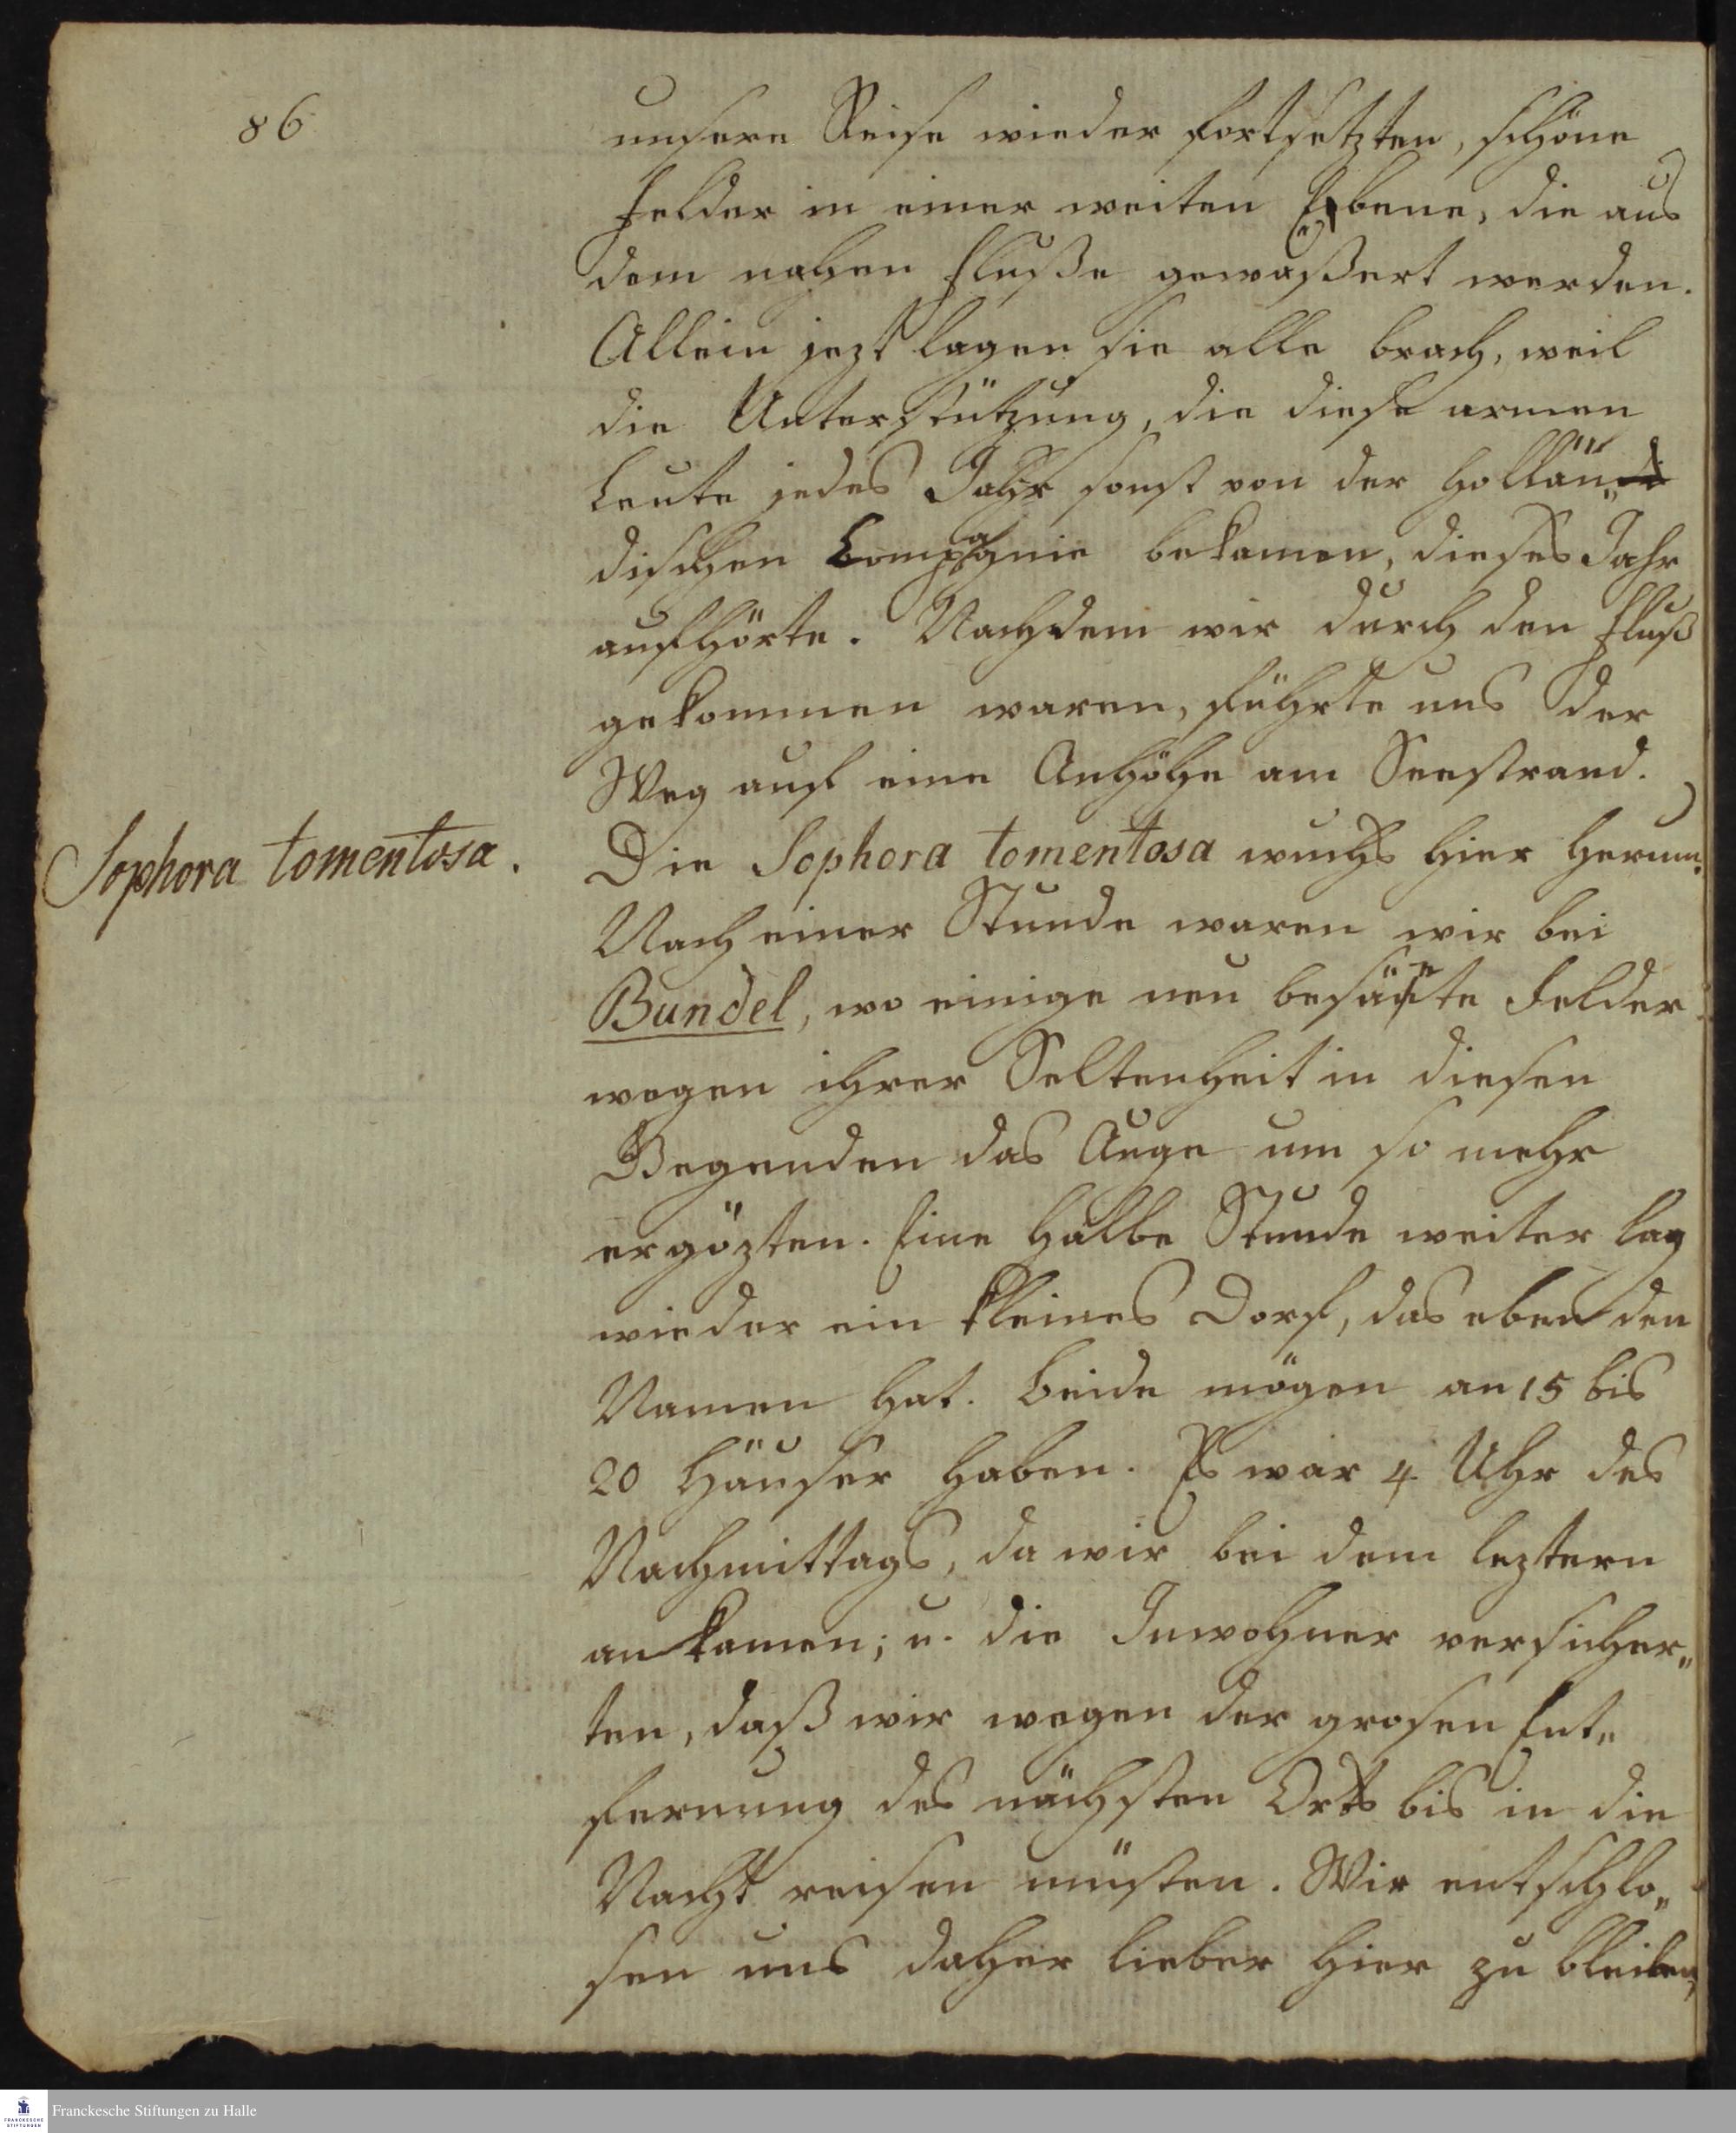 86
unsere Reise wieder fortsetzten, schöne
Felder in einer weiten Ebene, die aus
dem nahen Fluße gewäßert werden.
Allein jezt lagen sie alle brach, weil
die Unterstützung, die diese armen
Leute jedes Jahr sonst von der Hollän„
dischen Compagnie bekamen, dieses Jahr
aufhörte. Nachdem wir durch den Fluß
gekommen waren, führte uns der
Weg auf eine Anhöhe am Seestrand.
Sophora tomentosa.
Die Sophora tomentosa wuchs hier herum.
Nach einer Stunde waren wir bei
Bundel, wo einige neu besäete Felder
wegen ihrer Seltenheit in diesen
Gegenden das Auge um so mehr
ergözten. Eine halbe Stunde weiter lag
wieder ein kleines Dorf, das eben den
Namen hat. Beide mögen an 15 bis
20 Häuser haben. Es war 4 Uhr des
Nachmittags, da wir bei dem leztern
ankamen; u. die Inwohner versicher„
ten, daß wir wegen der grosen Ent„
fernung des nächsten Orts bis in die
Nacht reisen müsten. Wir entschlo„
sen uns daher lieber hier zu bleiben,
Franckesche Stiftungen zu Halle